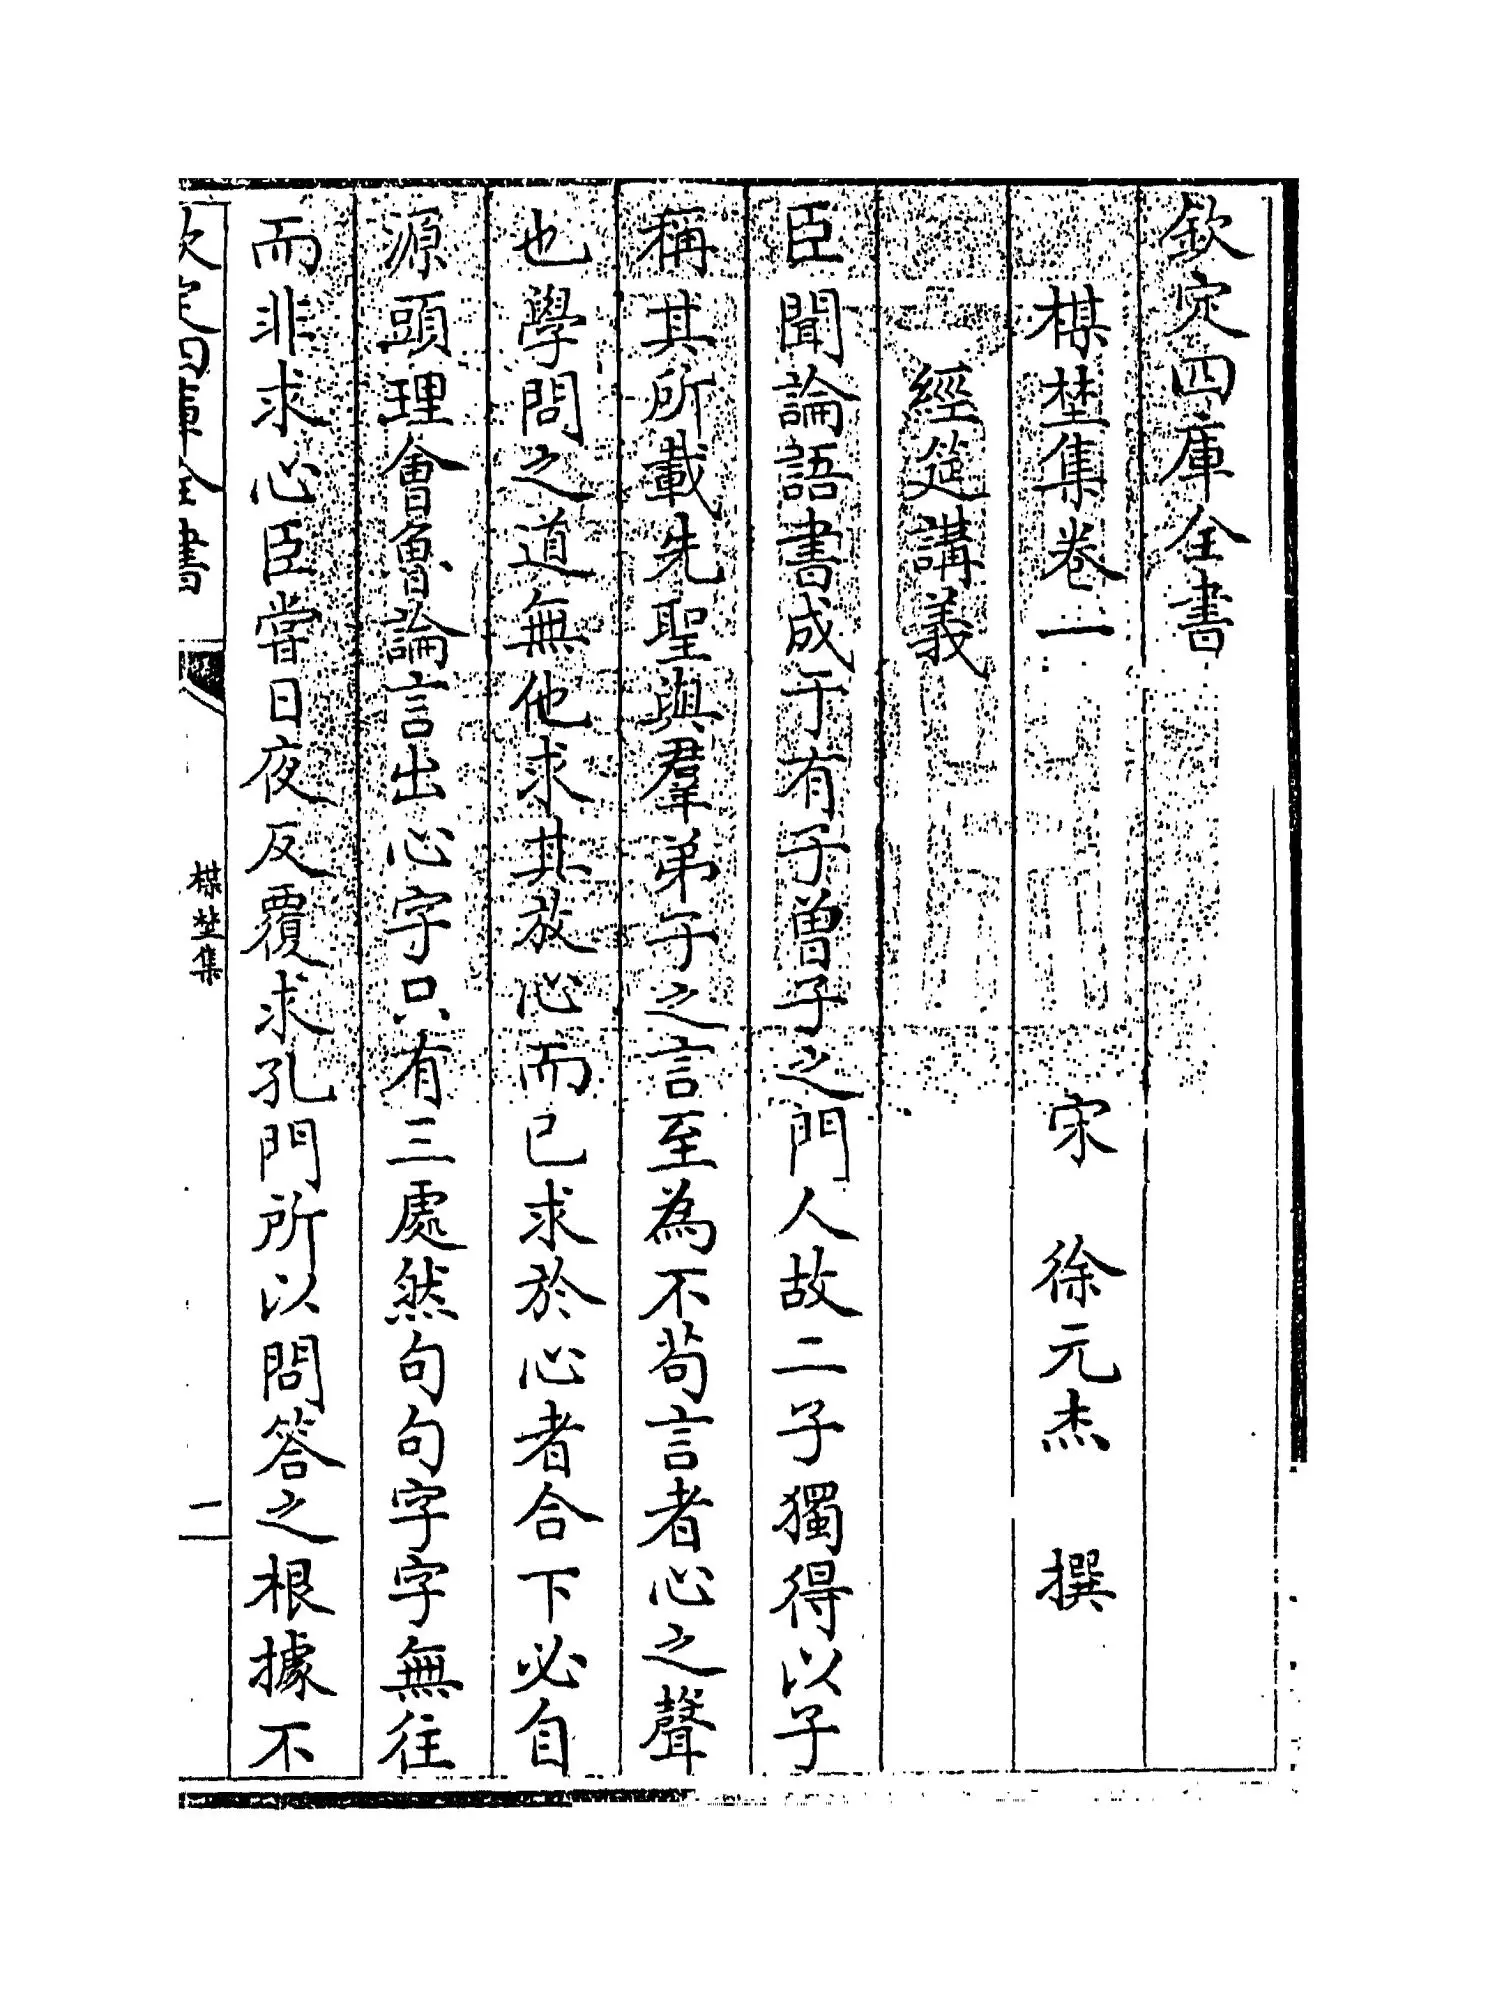 欽定四庫全書
楳埜集卷一　宋　徐元杰　撰
經筵講義
臣聞論語書成于有子曾子之門人故二子獨得以子
稱其所載先聖與羣弟子之言至為不苟言者心之聲
也學問之道無他求其放心而已求於心者合下必自
源頭理會魯論言出心字只有三處然句句字字無往
而非求心臣嘗日夜反覆求孔門所以問答之根據不
欽定四庫全書
楳埜集
一